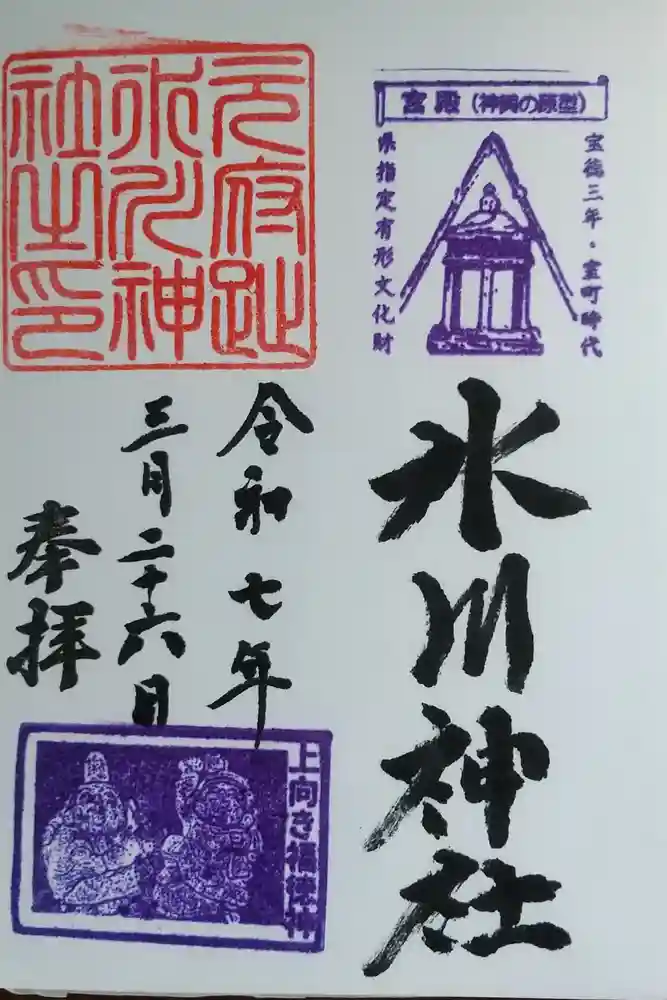 宮殿（神輿の原型）
宝徳三年・室町時代
県指定有形文化財
氷川神社
元府趾
氷川神
社之印
令和七年
三月二十六日
奉拝
上向き福徳神